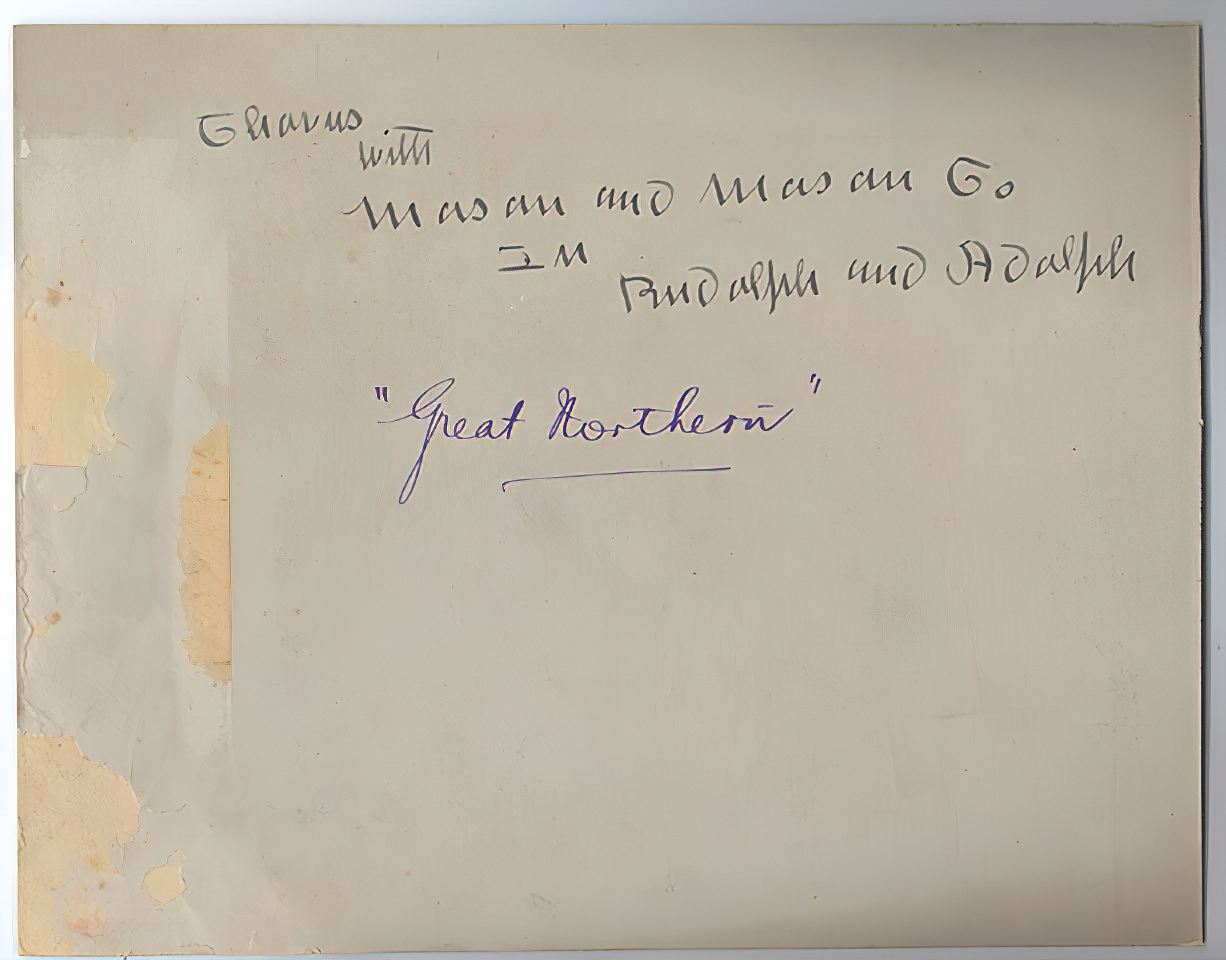 Chorus
with
Mason and Mason Co
In
Rudolph and Adolph
"Great Northern"